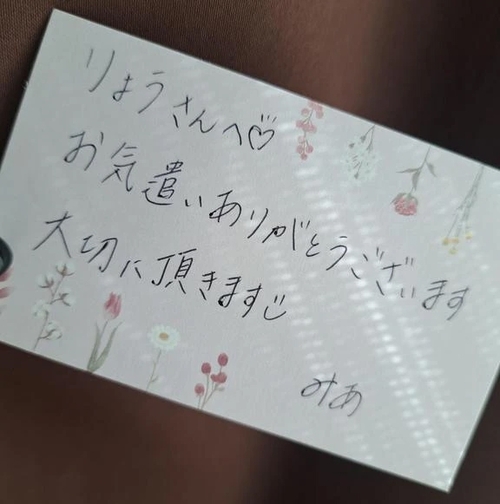 りょうさんへ♡
お気遣いありがとうございます
大切に頂きます☺
みあ